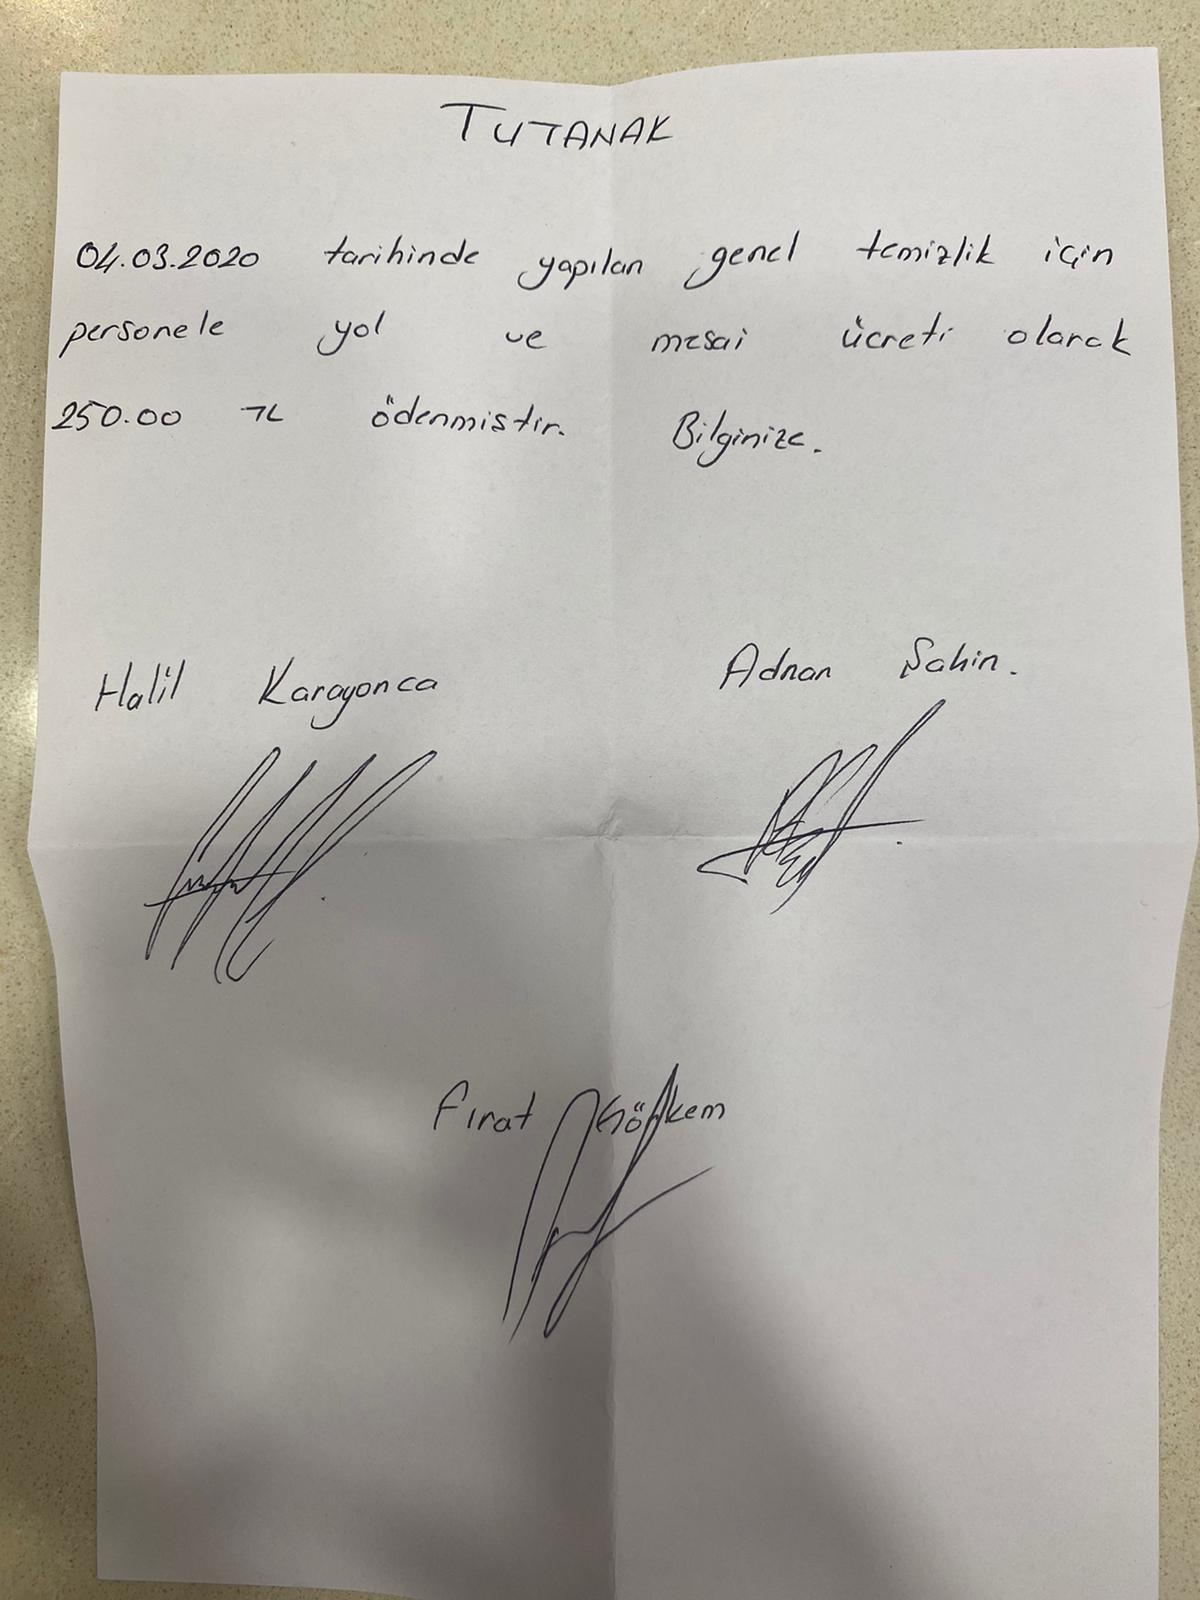 TUTANAK
04.03.2020 tarihinde yapılan genel temizlik için
personele yol ve mesai ücreti olarak
250.00 TL ödenmiştir. Bilginize.
Halil Karayonca
Adnan Şahin.
Fırat Gökkem